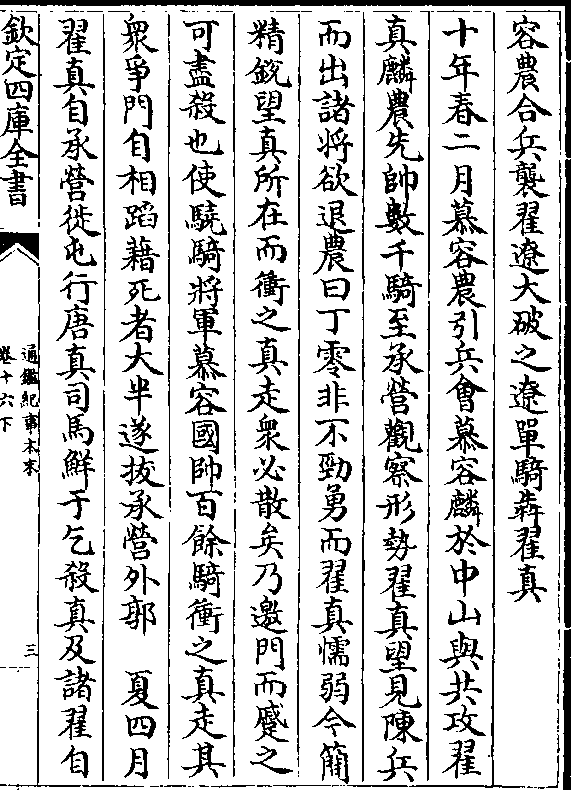 容農合兵襲翟遼大破之遼單騎犇翟真
十年春二月慕容農引兵會慕容麟於中山與共攻翟
真麟農先帥數千騎至承營觀察形勢翟真望見陳兵
而出諸將欲退農曰丁零非不勁勇而翟真懦弱今簡
精銳望真所在而衝之真走衆必散矣乃邀門而蹙之
可盡殺也使驍騎將軍慕容國帥百餘騎衝之真走其
衆爭門自相蹈藉死者大半遂拔承營外郭　夏四月
翟真自承營徙屯行唐真司馬鮮于乞殺真及諸翟自
欽定四庫全書
通鑑紀事本末
卷十六下
三